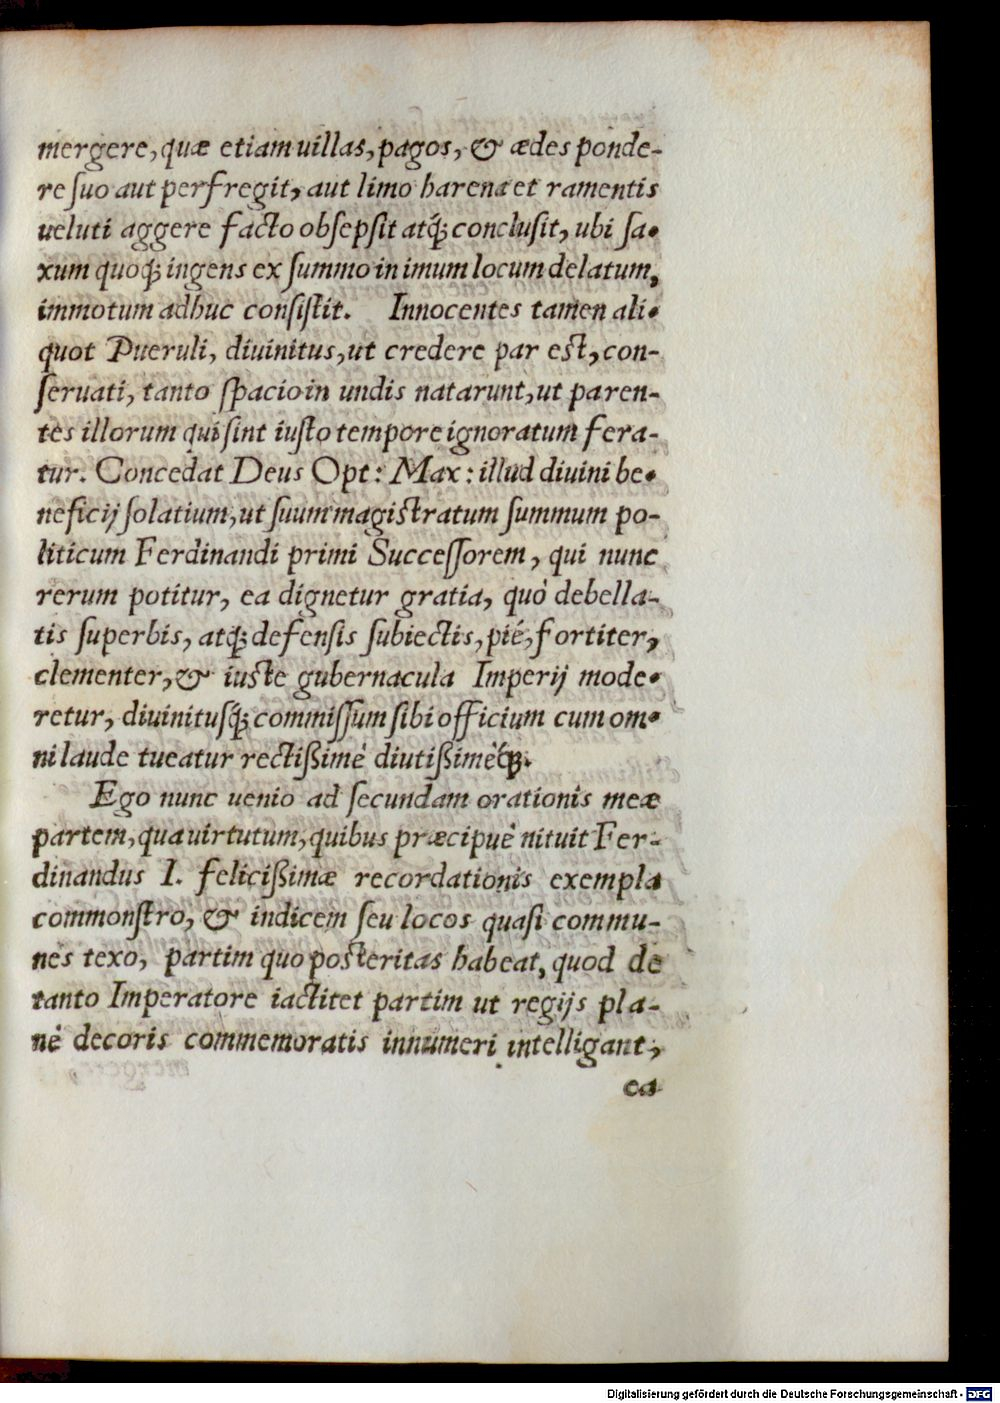 mergere, quæ etiam uillas, pagos, & ædes ponde-
re ſuo aut perfregit, aut limo harena et ramentis
ueluti aggere facto obſepſit atq́; concluſit, ubi ſa-
xum quoq́; ingens ex ſummo in imum locum delatum,
immotum adhuc conſiſtit. Innocentes tamen ali-
quot Pueruli, diuinitus, ut credere par est, con-
ſeruati, tanto ſpacio in undis natarunt, ut paren-
tes illorum qui ſint iuſto tempore ignoratum fera-
tur. Concedat Deus Opt: Max: illud diuini be-
neficij ſolatium, ut ſuum magiſtratum ſummum po-
liticum Ferdinandi primi Succeſſorem, qui nunc
rerum potitur, ea dignetur gratia, quò debella-
tis ſuperbis, atq́; defenſis ſubiectis, pié, fortiter,
clementer, & iuste gubernacula Imperij mode-
retur, diuinituſq́; commiſſum ſibi officium cum om-
ni laude tueatur rectißimè diutißimèq́;.
Ego nunc uenio ad ſecundam orationis meæ
partem, qua uirtutum, quibus præcipuè nituit Fer-
dinandus I. felicißimæ recordationis exempla
commonſtro, & indicem ſeu locos quaſi commu-
nes texo, partim quo posteritas habeat, quod de
tanto Imperatore iactitet partim ut regijs pla-
nè decoris commemoratis innumeri intelligant,
ea
Digitalisierung gefördert durch die Deutsche Forschungsgemeinschaft - DFG